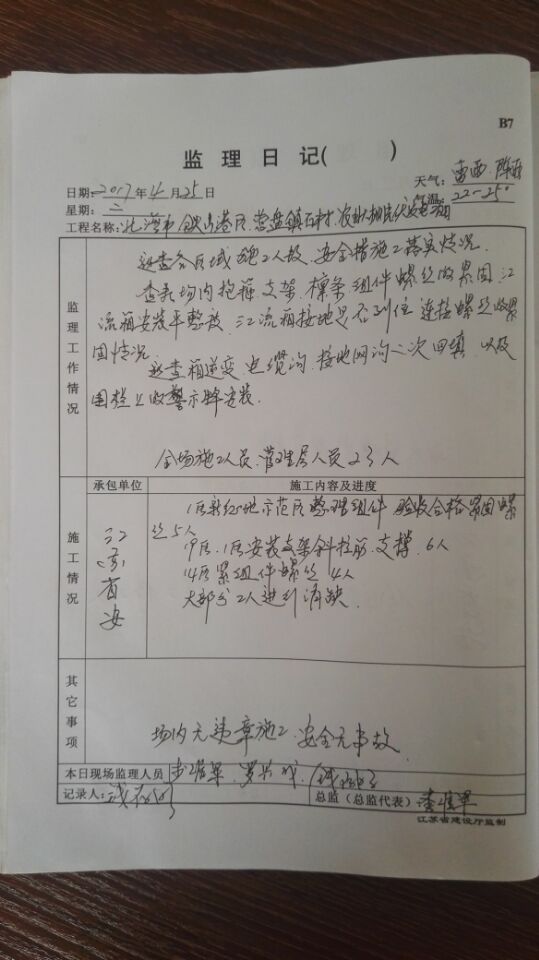 B7
监理日记( )
天气: 雷雨 阵雨
日期: 2017年4月25日
气温: 22-25°
星期: 二
工程名称: 北海市铁山港区营盘镇石村农业
监理工作情况
巡查各区域施工人数、安全措施工落实情况.
查看场内抱箍支架、檩条组件螺丝的紧固、汇
流箱安装平整数、汇流箱接地是否到位 连接螺丝的紧
固情况.
巡查箱逆变电缆沟、接地网沟二次回填 以及
围栏上的警示牌安装.
全场施工人员、管理层人员23人
承包单位
施工内容及进度
施工情况
江苏省安
1区 示范区整理组件 验收合格紧固螺
丝5人
19区、1区安装支架斜拉筋、支撑、6人
14区紧组件螺丝4人
大部分工人进行消缺.
其它事项
场内无违章施工、安全无事故
本日现场监理人员
记录人:
总监(总监代表):
江苏省建设厅监制